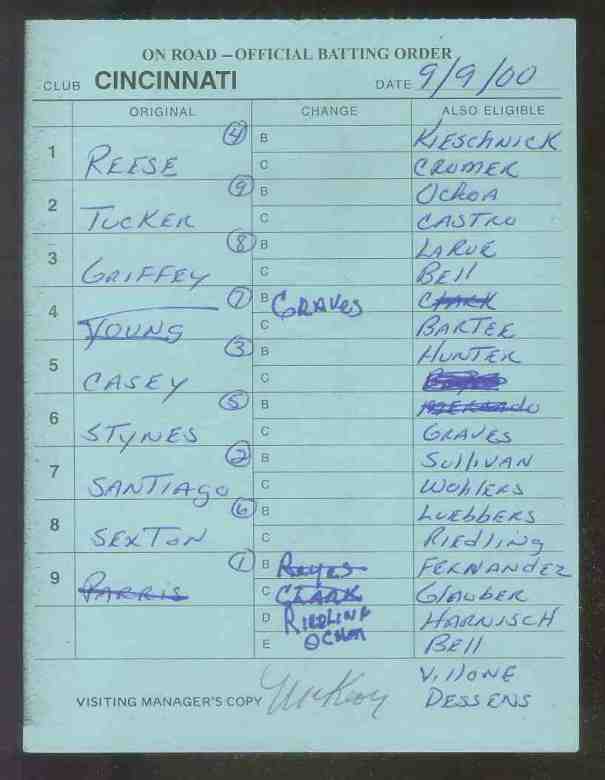 ON ROAD – OFFICIAL BATTING ORDER
CLUB CINCINNATI DATE 9/9/00
ORIGINAL CHANGE ALSO ELIGIBLE
1 REESE 4 B KIESCHNICK
C CROMER
2 TUCKER 9 B OCHOA
C CASTRO
3 GRIFFEY 8 B LARUE
C BELL
4 YOUNG 7 B GRAVES CLARK
C BARTEE
5 CASEY 3 B HUNTER
C
6 STYNES 5 B
C GRAVES
7 SANTIAGO 2 B SULLIVAN
C WOHLERS
8 SEXTON 6 B LUEBBERS
C RIEDLING
9 PARRIS 1 B REYES FERNANDEZ
C CLARK GLAUBER
D RIEDLING HARNISCH
E OCHOA BELL
VILLONE
VISITING MANAGER'S COPY DESSENS